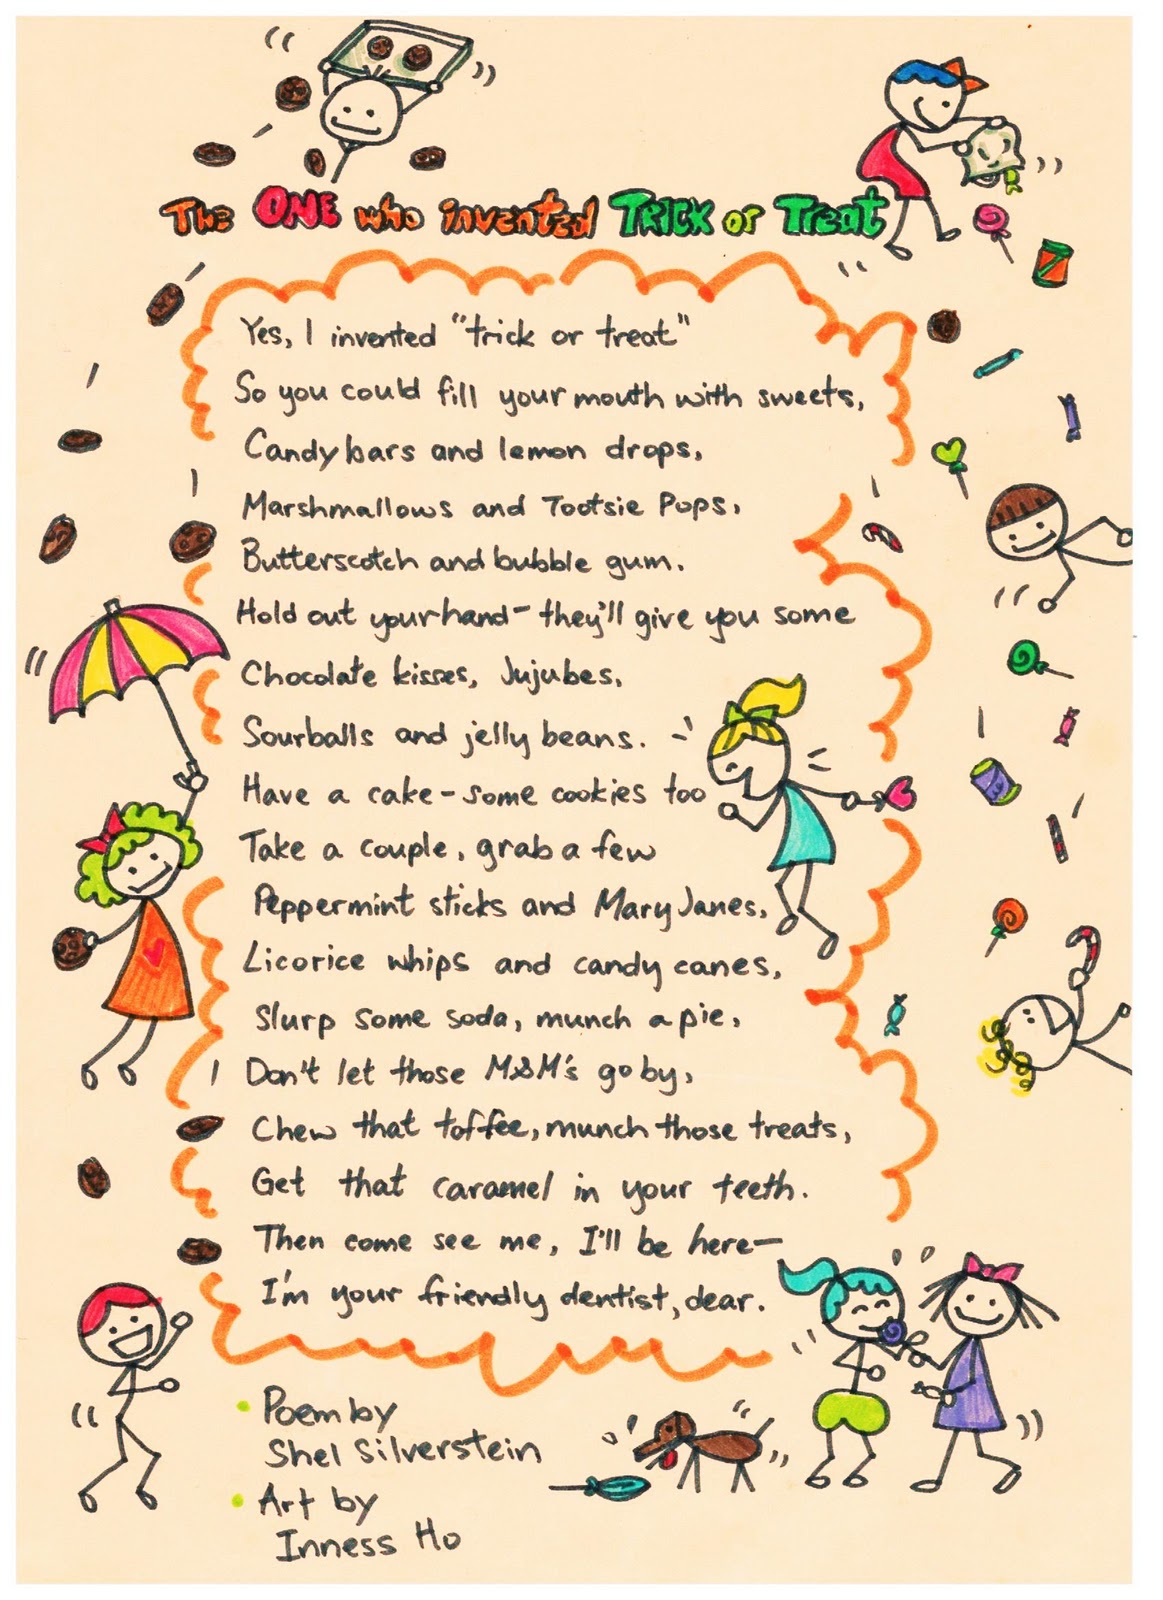 The ONE who invented TRICK or Treat
Yes, I invented "trick or treat"
So you could fill your mouth with sweets,
Candy bars and lemon drops,
Marshmallows and Tootsie Pops,
Butterscotch and bubble gum.
Hold out your hand- they'll give you some
Chocolate kisses, Jujubes,
Sourballs and jelly beans.
Have a cake-some cookies too
Take a couple, grab a few
Peppermint sticks and Mary Janes,
Licorice whips and candy canes,
Slurp some soda, munch a pie,
Don't let those M&M's go by,
Chew that toffee, munch those treats,
Get that caramel in your teeth.
Then come see me, I'll be here—
I'm your friendly dentist, dear.
• Poem by
Shel Silverstein
• Art by
Inness Ho